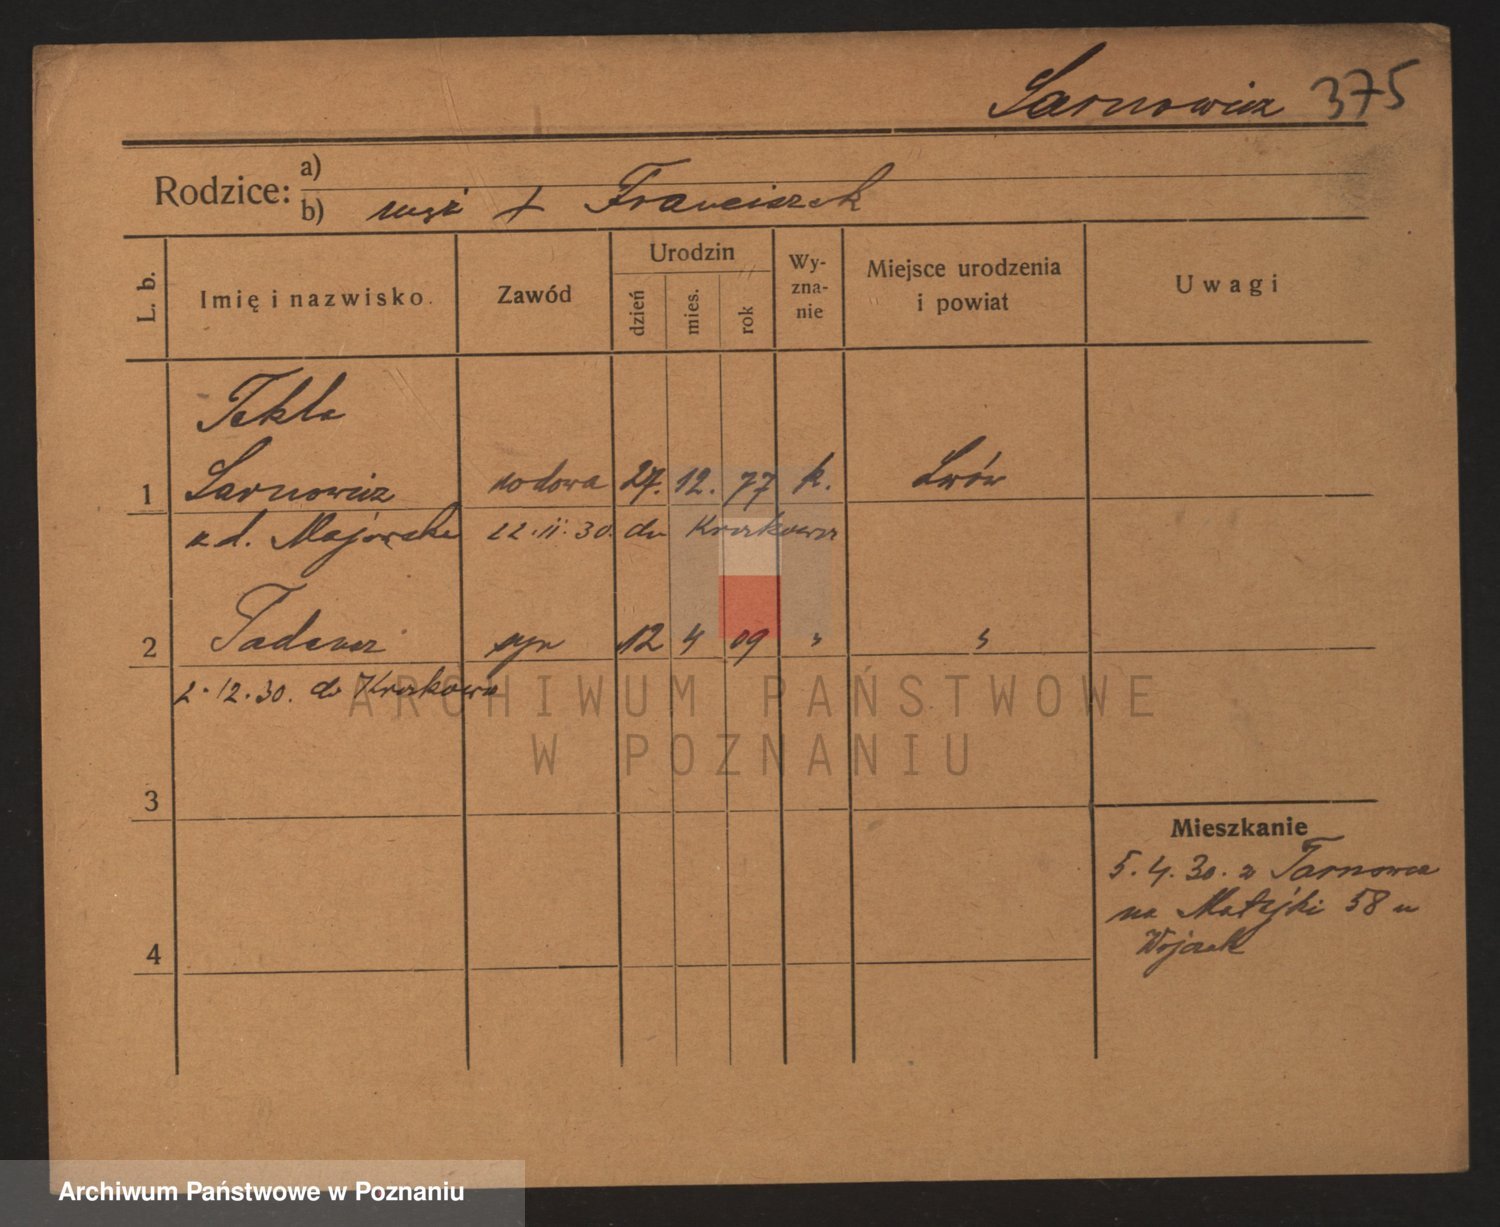 Sarnowicz 375
Rodzice: a)
b) mąż + Franciszek
L. b. Imię i nazwisko. Zawód Urodzin dzień mies. rok Wy-zna-nie Miejsce urodzenia i powiat Uwagi
Tekla
1 Sarnowicz wdowa 27. 12. 77 k. Lwów
z d. Majorska 22.11.30. do Krakowa
2 Tadeusz syn 12 4 09 " "
2.12.30. do Krakowa
3
4
Mieszkanie
5.4.30. z Tarnowa
na Matejki 58 u
Wojcik
ARCHIWUM PAŃSTWOWE
W POZNANIU
Archiwum Państwowe w Poznaniu